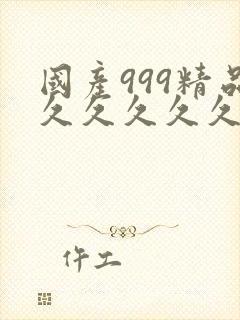 國產999精品
久久久久久
仵工